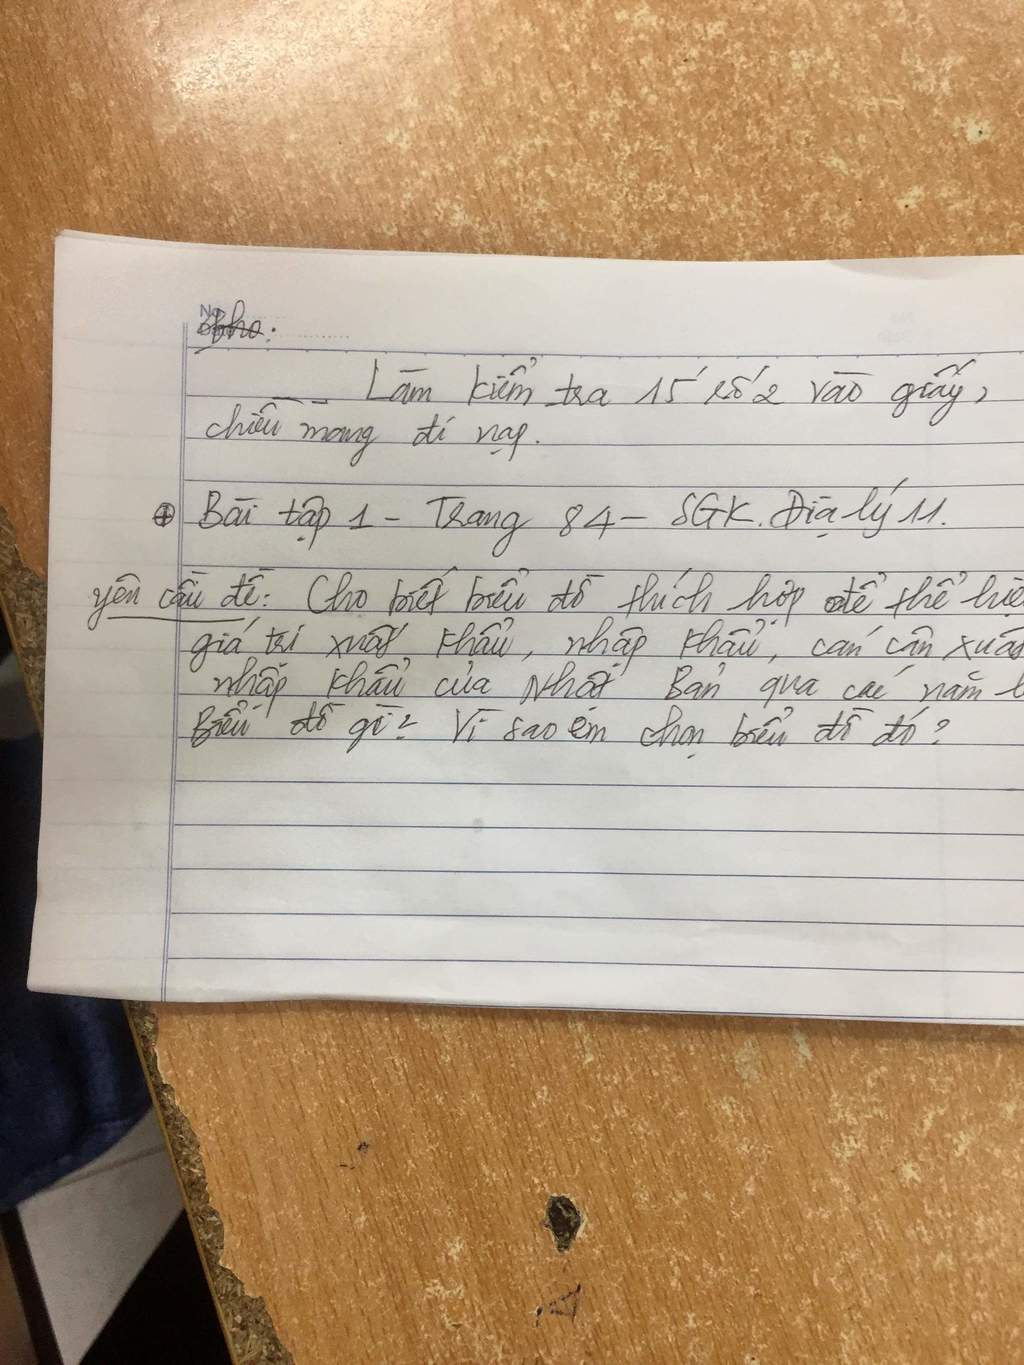 No
Làm kiểm tra 15' số 2 vào giấy,
chiều mang đi nạp.
⊕ Bài tập 1 - Trang 84 - SGK. Địa lý 11.
yêu cầu đề: Cho biết biểu đồ thích hợp để thể hiệ
giá trị xuất khẩu, nhập khẩu, cán cân xuấ
nhập khẩu của Nhật Bản qua các năm l
Biểu đồ gì? Vì sao em chọn biểu đồ đó?